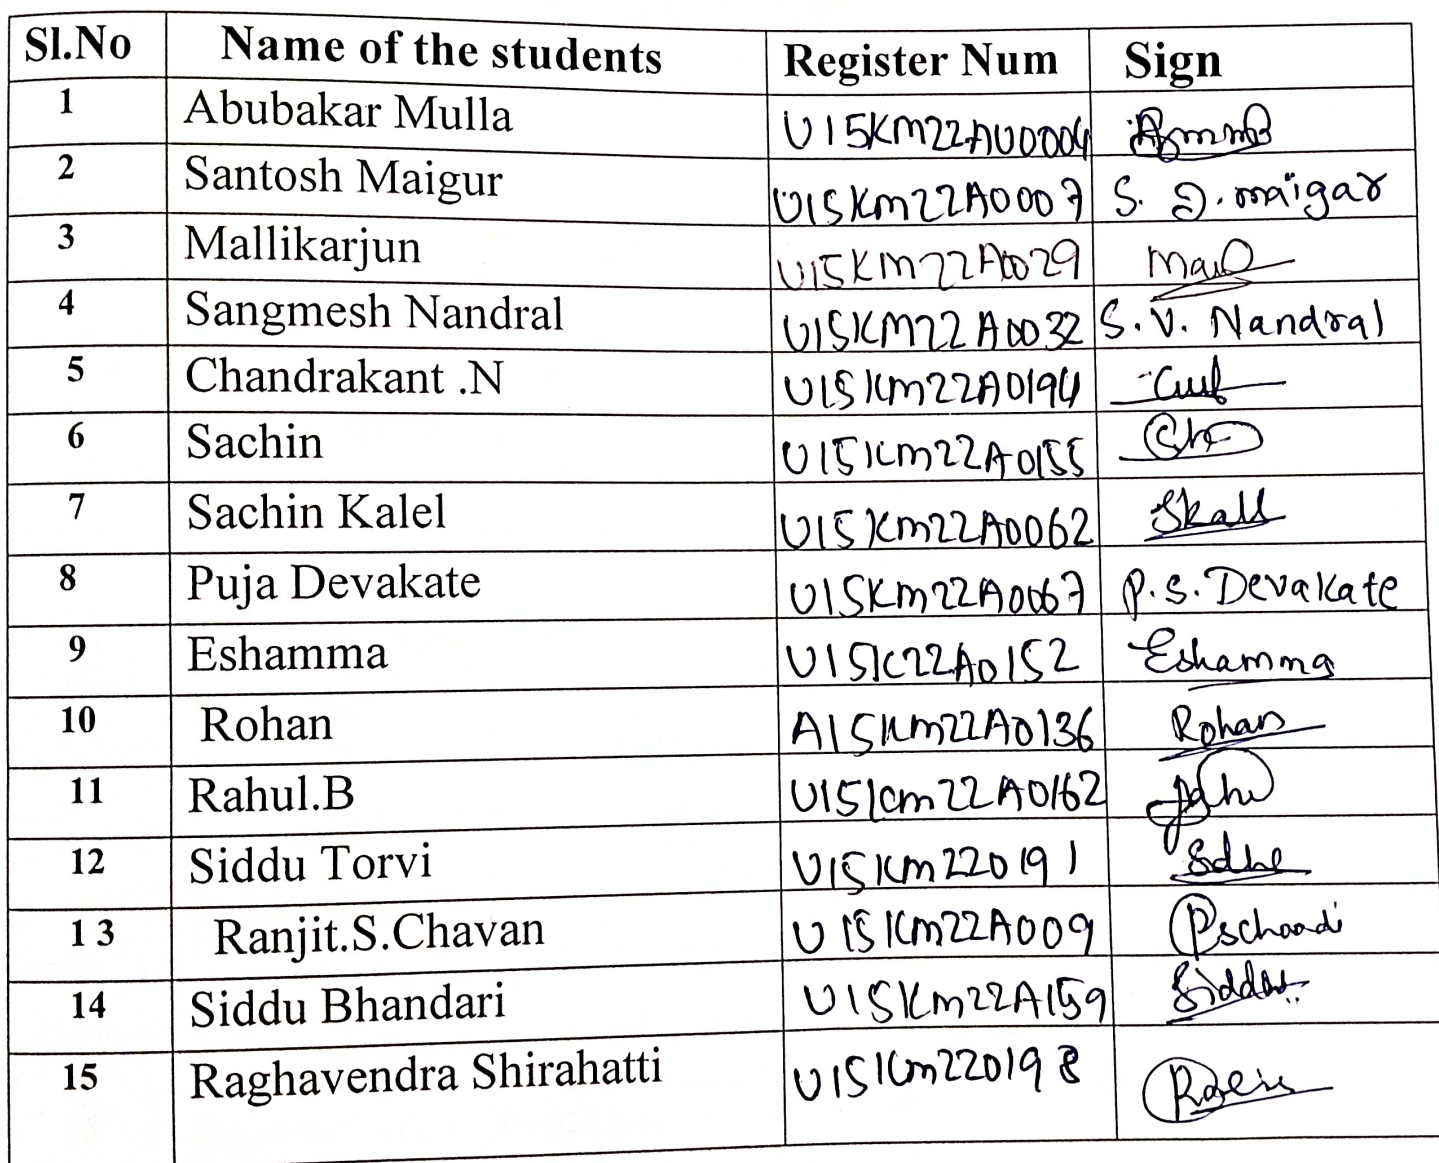 Sl.No Name of the students Register Num Sign
1 Abubakar Mulla U15KM22AU0004
2 Santosh Maigur U15KM22A0007 S. D. maigar
3 Mallikarjun U15KM22A0029
4 Sangmesh Nandral U15KM22A0032 S.V. Nandral
5 Chandrakant .N U15KM22A0194
6 Sachin U15KM22A0155
7 Sachin Kalel U15KM22A0062 Skall
8 Puja Devakate U15KM22A0067 P.S. Devakate
9 Eshamma U15K22A0152 Eshamma
10 Rohan A15KM22A0136 Rohan
11 Rahul.B U15KM22A0162
12 Siddu Torvi U15KM220191
13 Ranjit.S.Chavan U15KM22A009
14 Siddu Bhandari U15KM22A159 Siddu
15 Raghavendra Shirahatti U15KM220198